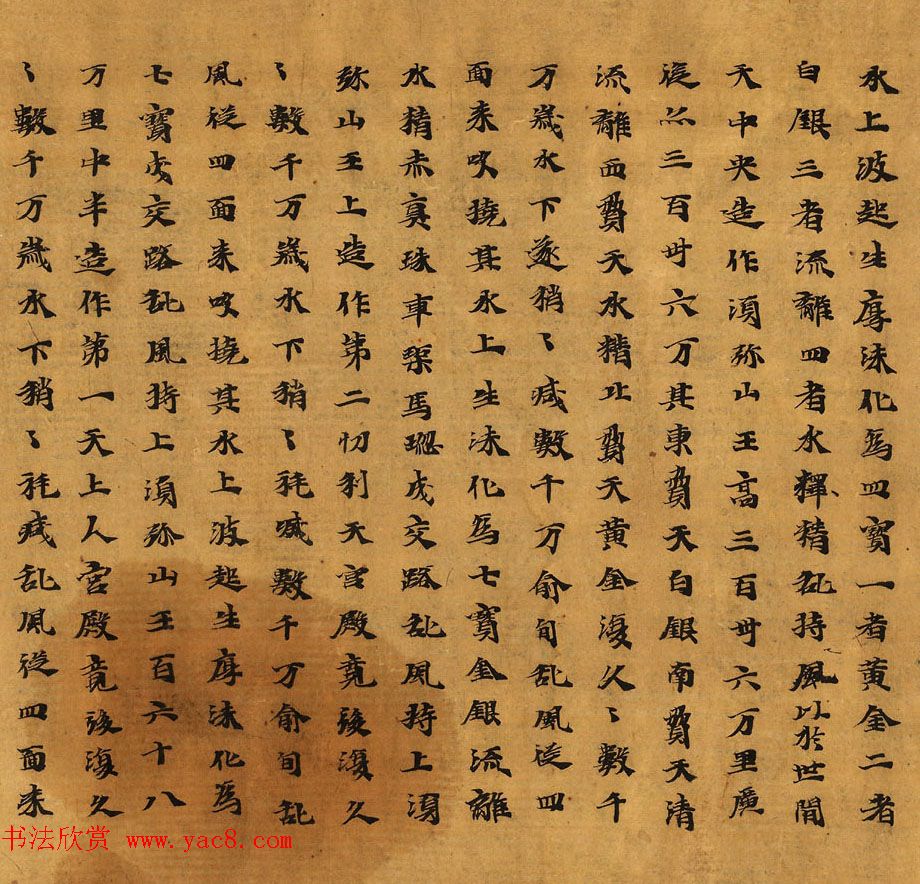 水上波起生厚沫化為四寶一者黃金二者
白銀三者流離四者水釋精乱持風以於世間
天中央造作湏弥山王高三百卅六万里廣
從亦三百卅六万其東費天白銀南費天清
流離西費天水精北費天黃金復久〻數千
万歲水下遂稍〻減數千万俞旬乱風從四
面来吹撓其水上生沫化為七寶金銀流離
水精赤真珠車渠馬瑙成交路乱風持上湏
弥山王上造作第二忉利天宮殿竟後復久
〻數千万歲水下稍〻耗減數千万俞旬乱
風從四面来吹撓其水上波起生厚沫化為
七寶成交路乱風持上湏弥山王百六十八
万里中半造作第一天上人宮殿竟後復久
〻數千万歲水下稍〻耗減乱風從四面来
书法欣赏 www.yac8.com